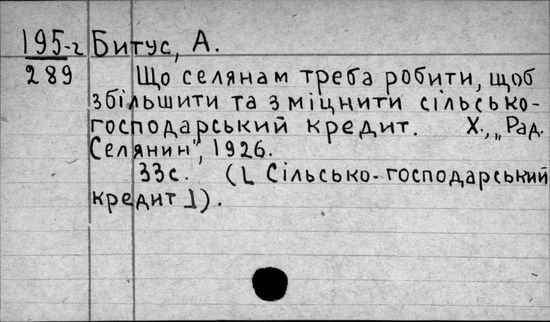 195-г Битус, А.
289 Що селянам треба робити, щоб
збільшити та зміцнити сільсько-
господарський кредит. Х., „Рад.
Селянин", 1926.
33с. (⌊ Сільсько-господарський
кредит⌋).